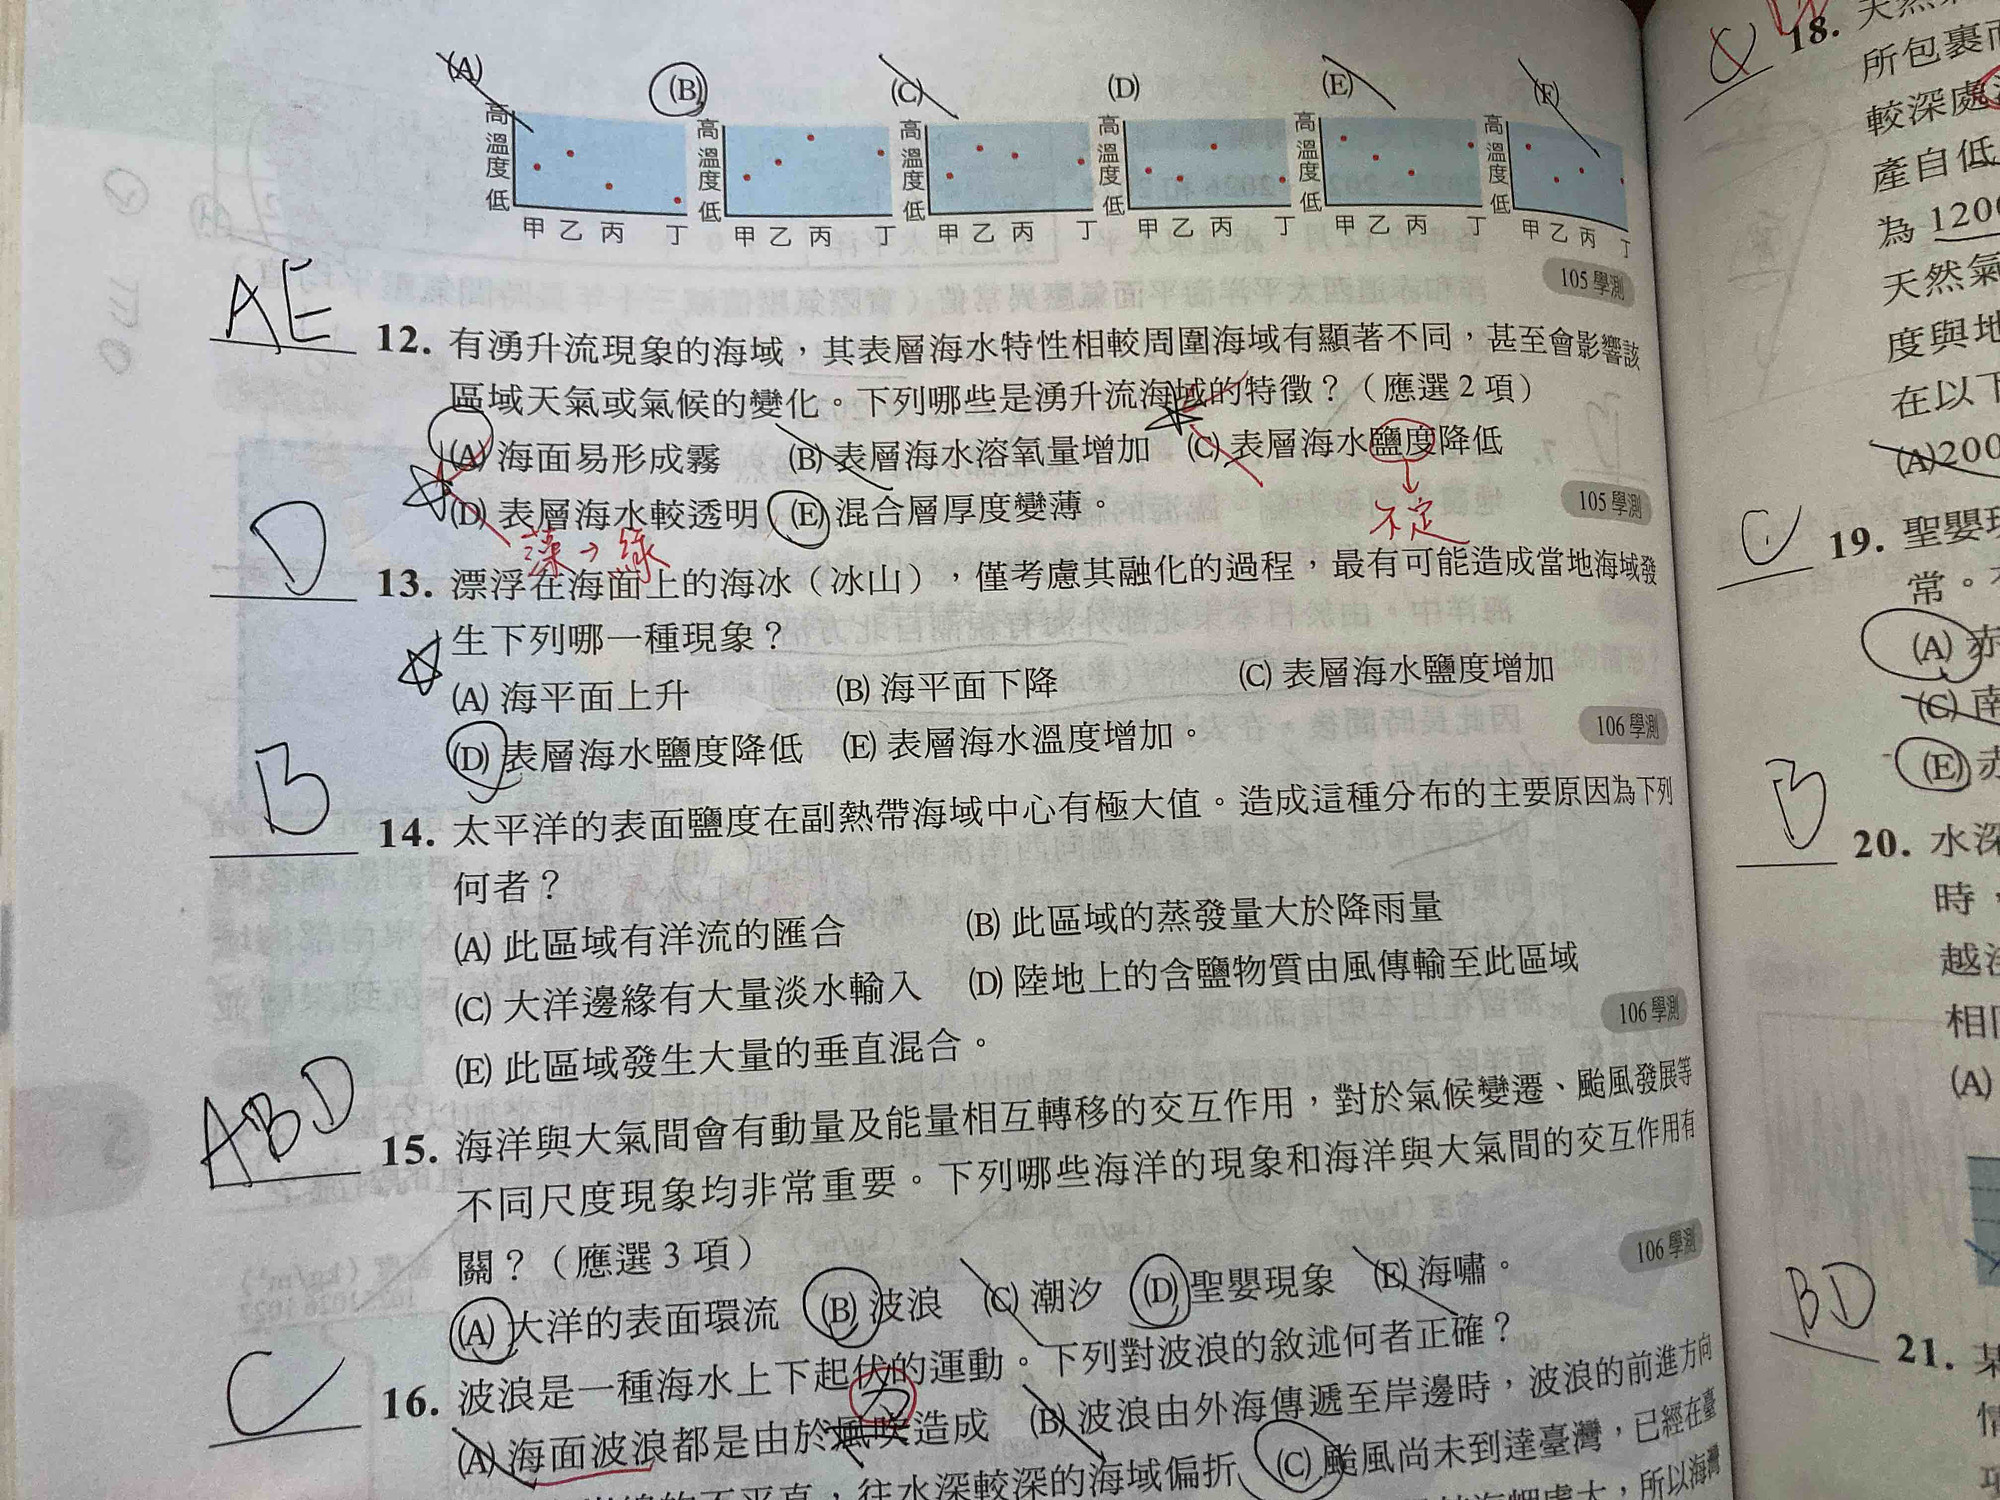 (A) (B) (C) (D) (E) (F)
高 高 高 高 高 高
溫 溫 溫 溫 溫 溫
度 度 度 度 度 度
低 低 低 低 低 低
甲 乙 丙 丁 甲 乙 丙 丁 甲 乙 丙 丁 甲 乙 丙 丁 甲 乙 丙 丁 甲 乙 丙 丁
105 學測
AE 12. 有湧升流現象的海域，其表層海水特性相較周圍海域有顯著不同，甚至會影響該
區域天氣或氣候的變化。下列哪些是湧升流海域的特徵？（應選 2 項）
(A) 海面易形成霧 (B) 表層海水溶氧量增加 (C) 表層海水鹽度降低
(D) 表層海水較透明 (E) 混合層厚度變薄。 不定 105 學測
藻→綠
D 13. 漂浮在海面上的海冰（冰山），僅考慮其融化的過程，最有可能造成當地海域發
生下列哪一種現象？
(A) 海平面上升 (B) 海平面下降 (C) 表層海水鹽度增加
(D) 表層海水鹽度降低 (E) 表層海水溫度增加。 106 學測
B 14. 太平洋的表面鹽度在副熱帶海域中心有極大值。造成這種分布的主要原因為下列
何者？
(A) 此區域有洋流的匯合 (B) 此區域的蒸發量大於降雨量
(C) 大洋邊緣有大量淡水輸入 (D) 陸地上的含鹽物質由風傳輸至此區域
(E) 此區域發生大量的垂直混合。 106 學測
ABD 15. 海洋與大氣間會有動量及能量相互轉移的交互作用，對於氣候變遷、颱風發展等
不同尺度現象均非常重要。下列哪些海洋的現象和海洋與大氣間的交互作用有
關？（應選 3 項）
(A) 大洋的表面環流 (B) 波浪 (C) 潮汐 (D) 聖嬰現象 (E) 海嘯。 106 學測
C 16. 波浪是一種海水上下起伏的運動。下列對波浪的敘述何者正確？
力
(A) 海面波浪都是由於風吹造成 (B) 波浪由外海傳遞至岸邊時，波浪的前進方向
往水深較深的海域偏折 (C) 颱風尚未到達臺灣，已經在臺
所以海灣
18. 天然氣
所包裹而
較深處
產自低
為 1200
天然氣
度與地
在以下
(A)200
C 19. 聖嬰現
常。
(A) 赤
(C) 南
(E) 赤
B 20. 水深
時，
越
相同
(A)
BD 21. 某
情